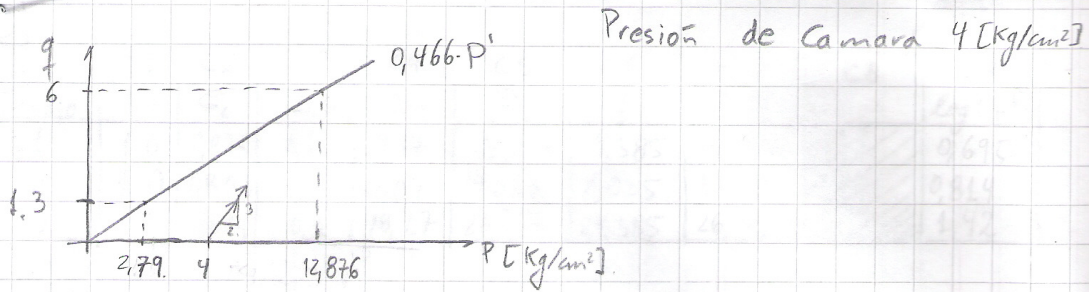 Presión de Camara 4 [Kg/cm²]
q
0,466·P'
6
1.3
3
2
2,79. 4 12,876 P [Kg/cm²].